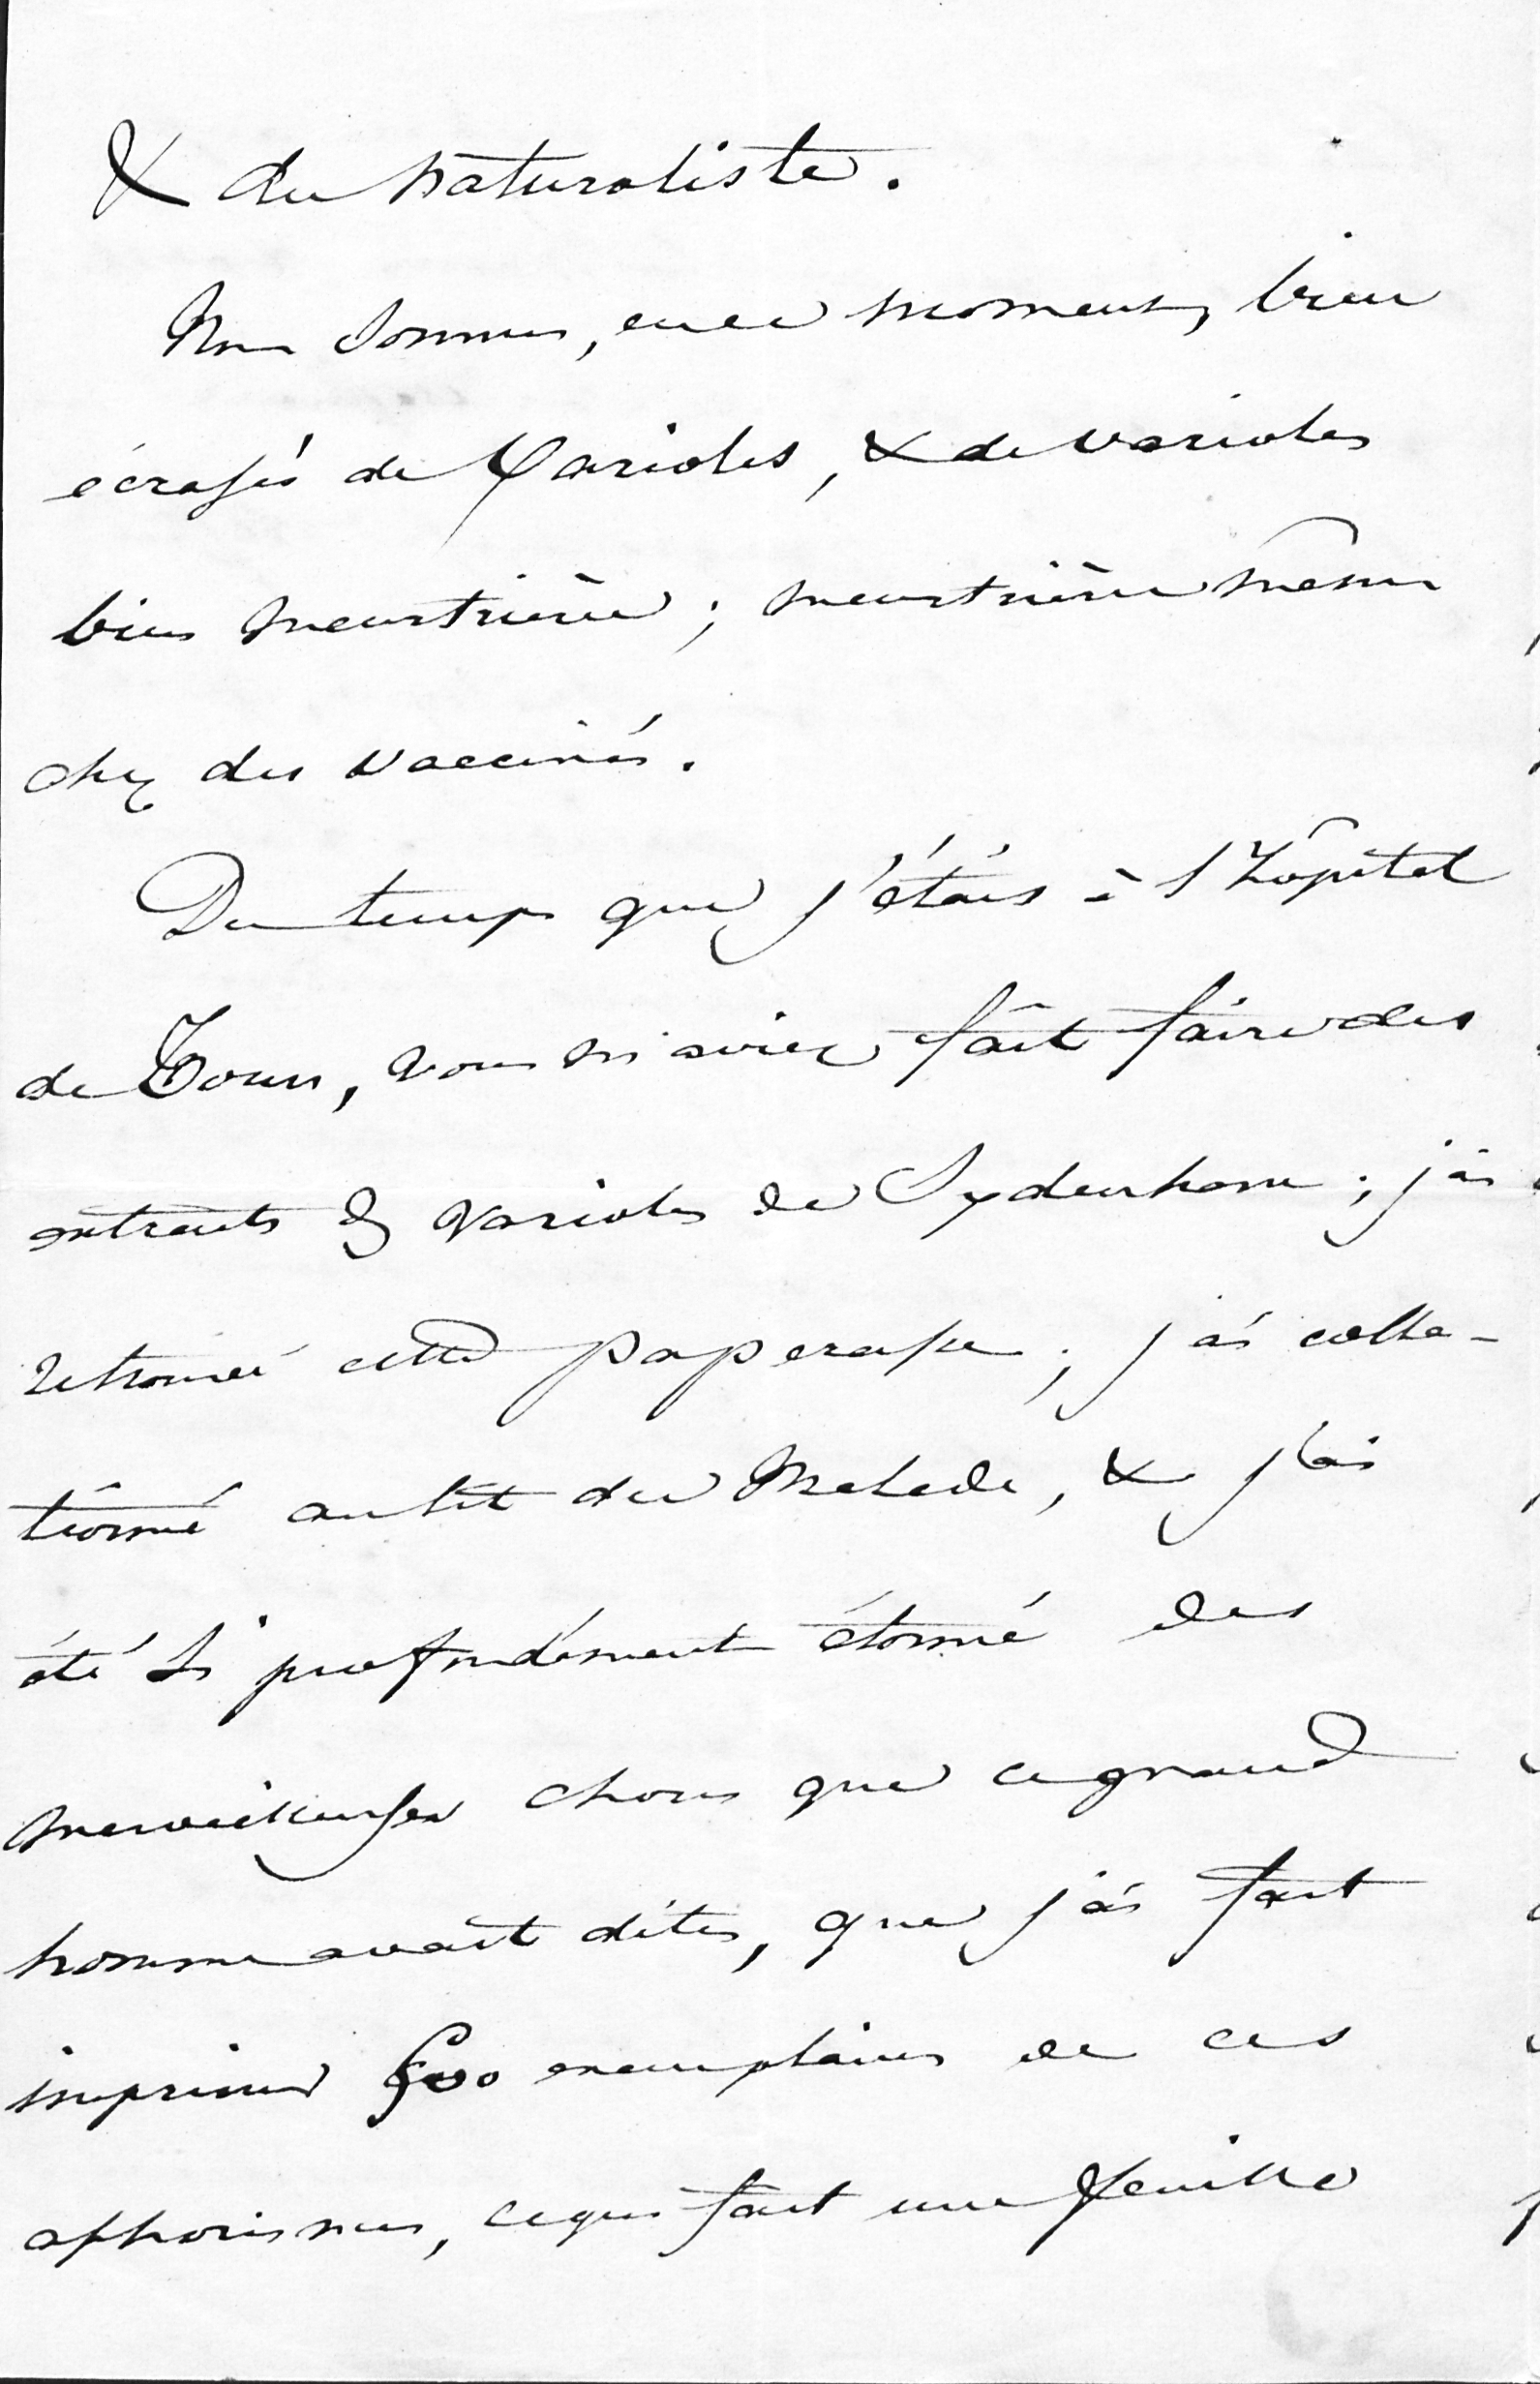 & du naturaliste.
Nous sommes, en ce moment, bien
écrasés de Varioles, & de varioles
bien meurtrières ; meurtrières même
chez des vaccinés.
Du temps que j'étais à l'hôpital
de Tours, vous m'aviez fait faire des
extraits des varioles de Sydenham ; j'ai
retrouvé cette paperasse ; j'ai colla-
tionné au lit du malade, & j'ai
été si profondément étonné des
merveilleuses choses que ce grand
homme avait dites, que j'ai fait
imprimer 600 exemplaires de ces
aphorismes, ce qui fait une feuille